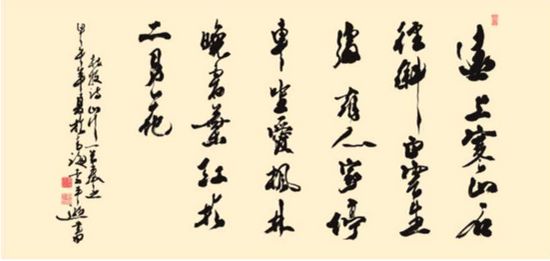 遠上寒山石
徑斜白雲生
處有人家停
車坐愛楓林
晚霜葉紅於
二月花
杜牧詩山行一首
甲午年夏於 書